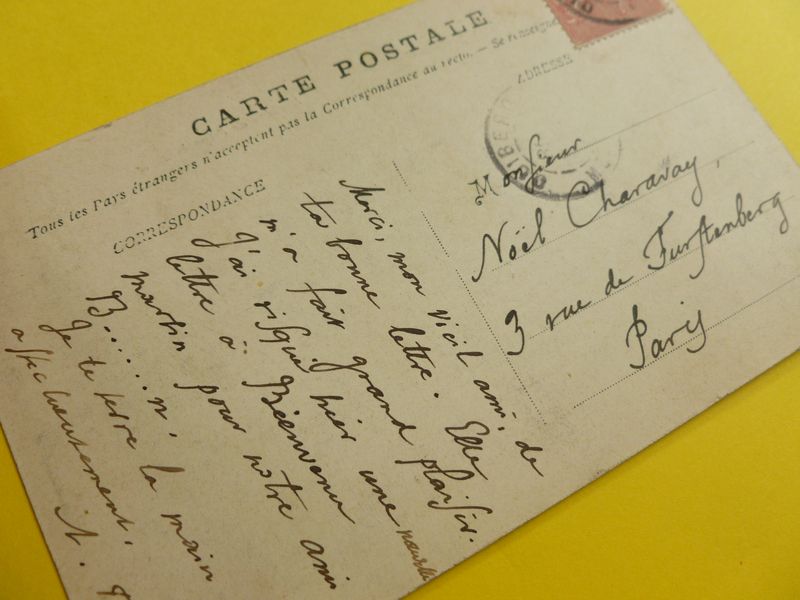 CARTE POSTALE
Tous les Pays étrangers n'acceptent pas la Correspondance au recto. — Se renseigne
CORRESPONDANCE
Merci, mon vieil ami, de
ta bonne lettre. Elle
m'a fait grand plaisir.
J'ai risqué hier une nouvelle
lettre à Bienvenu
Martin pour notre ami
B......n.
Je te serre la main
affectueusement.
ADRESSE
Monsieur
Noël Charavay,
3 rue de Furstenberg
Paris